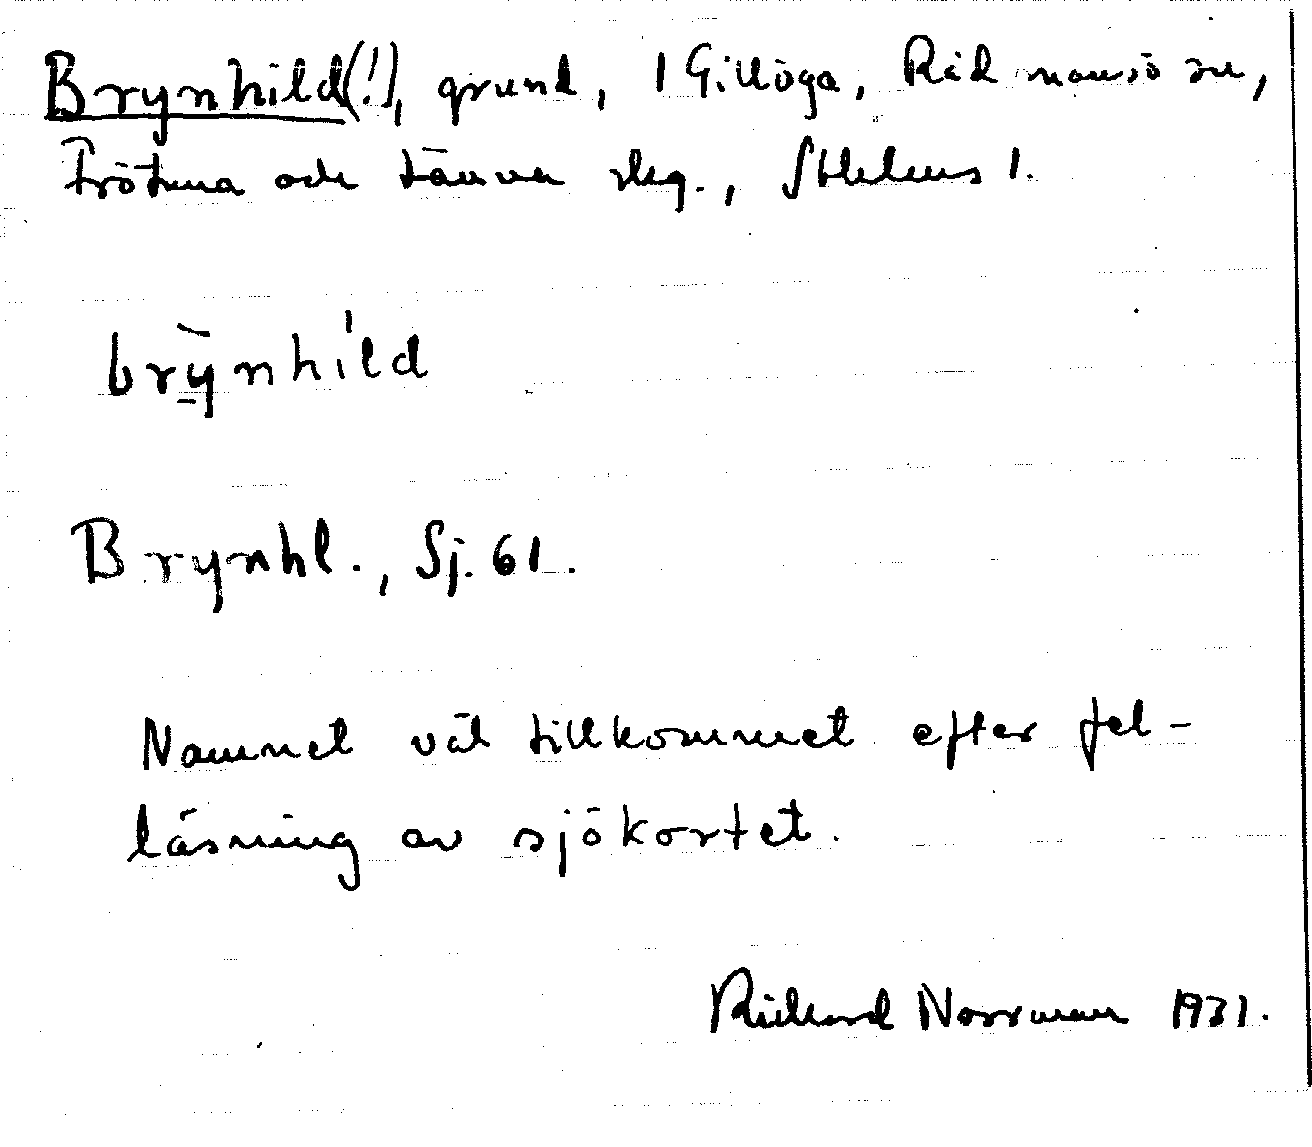 Brynhild(!), grund, i Gillöga, Rådmansö sn,
Frötuna och Länna skg., Sthlms l.
brȳnhìld
Brynhl., Sj. 61.
Namnet väl tillkommet efter fel-
läsning av sjökortet.
Rickard Norrman 1931.